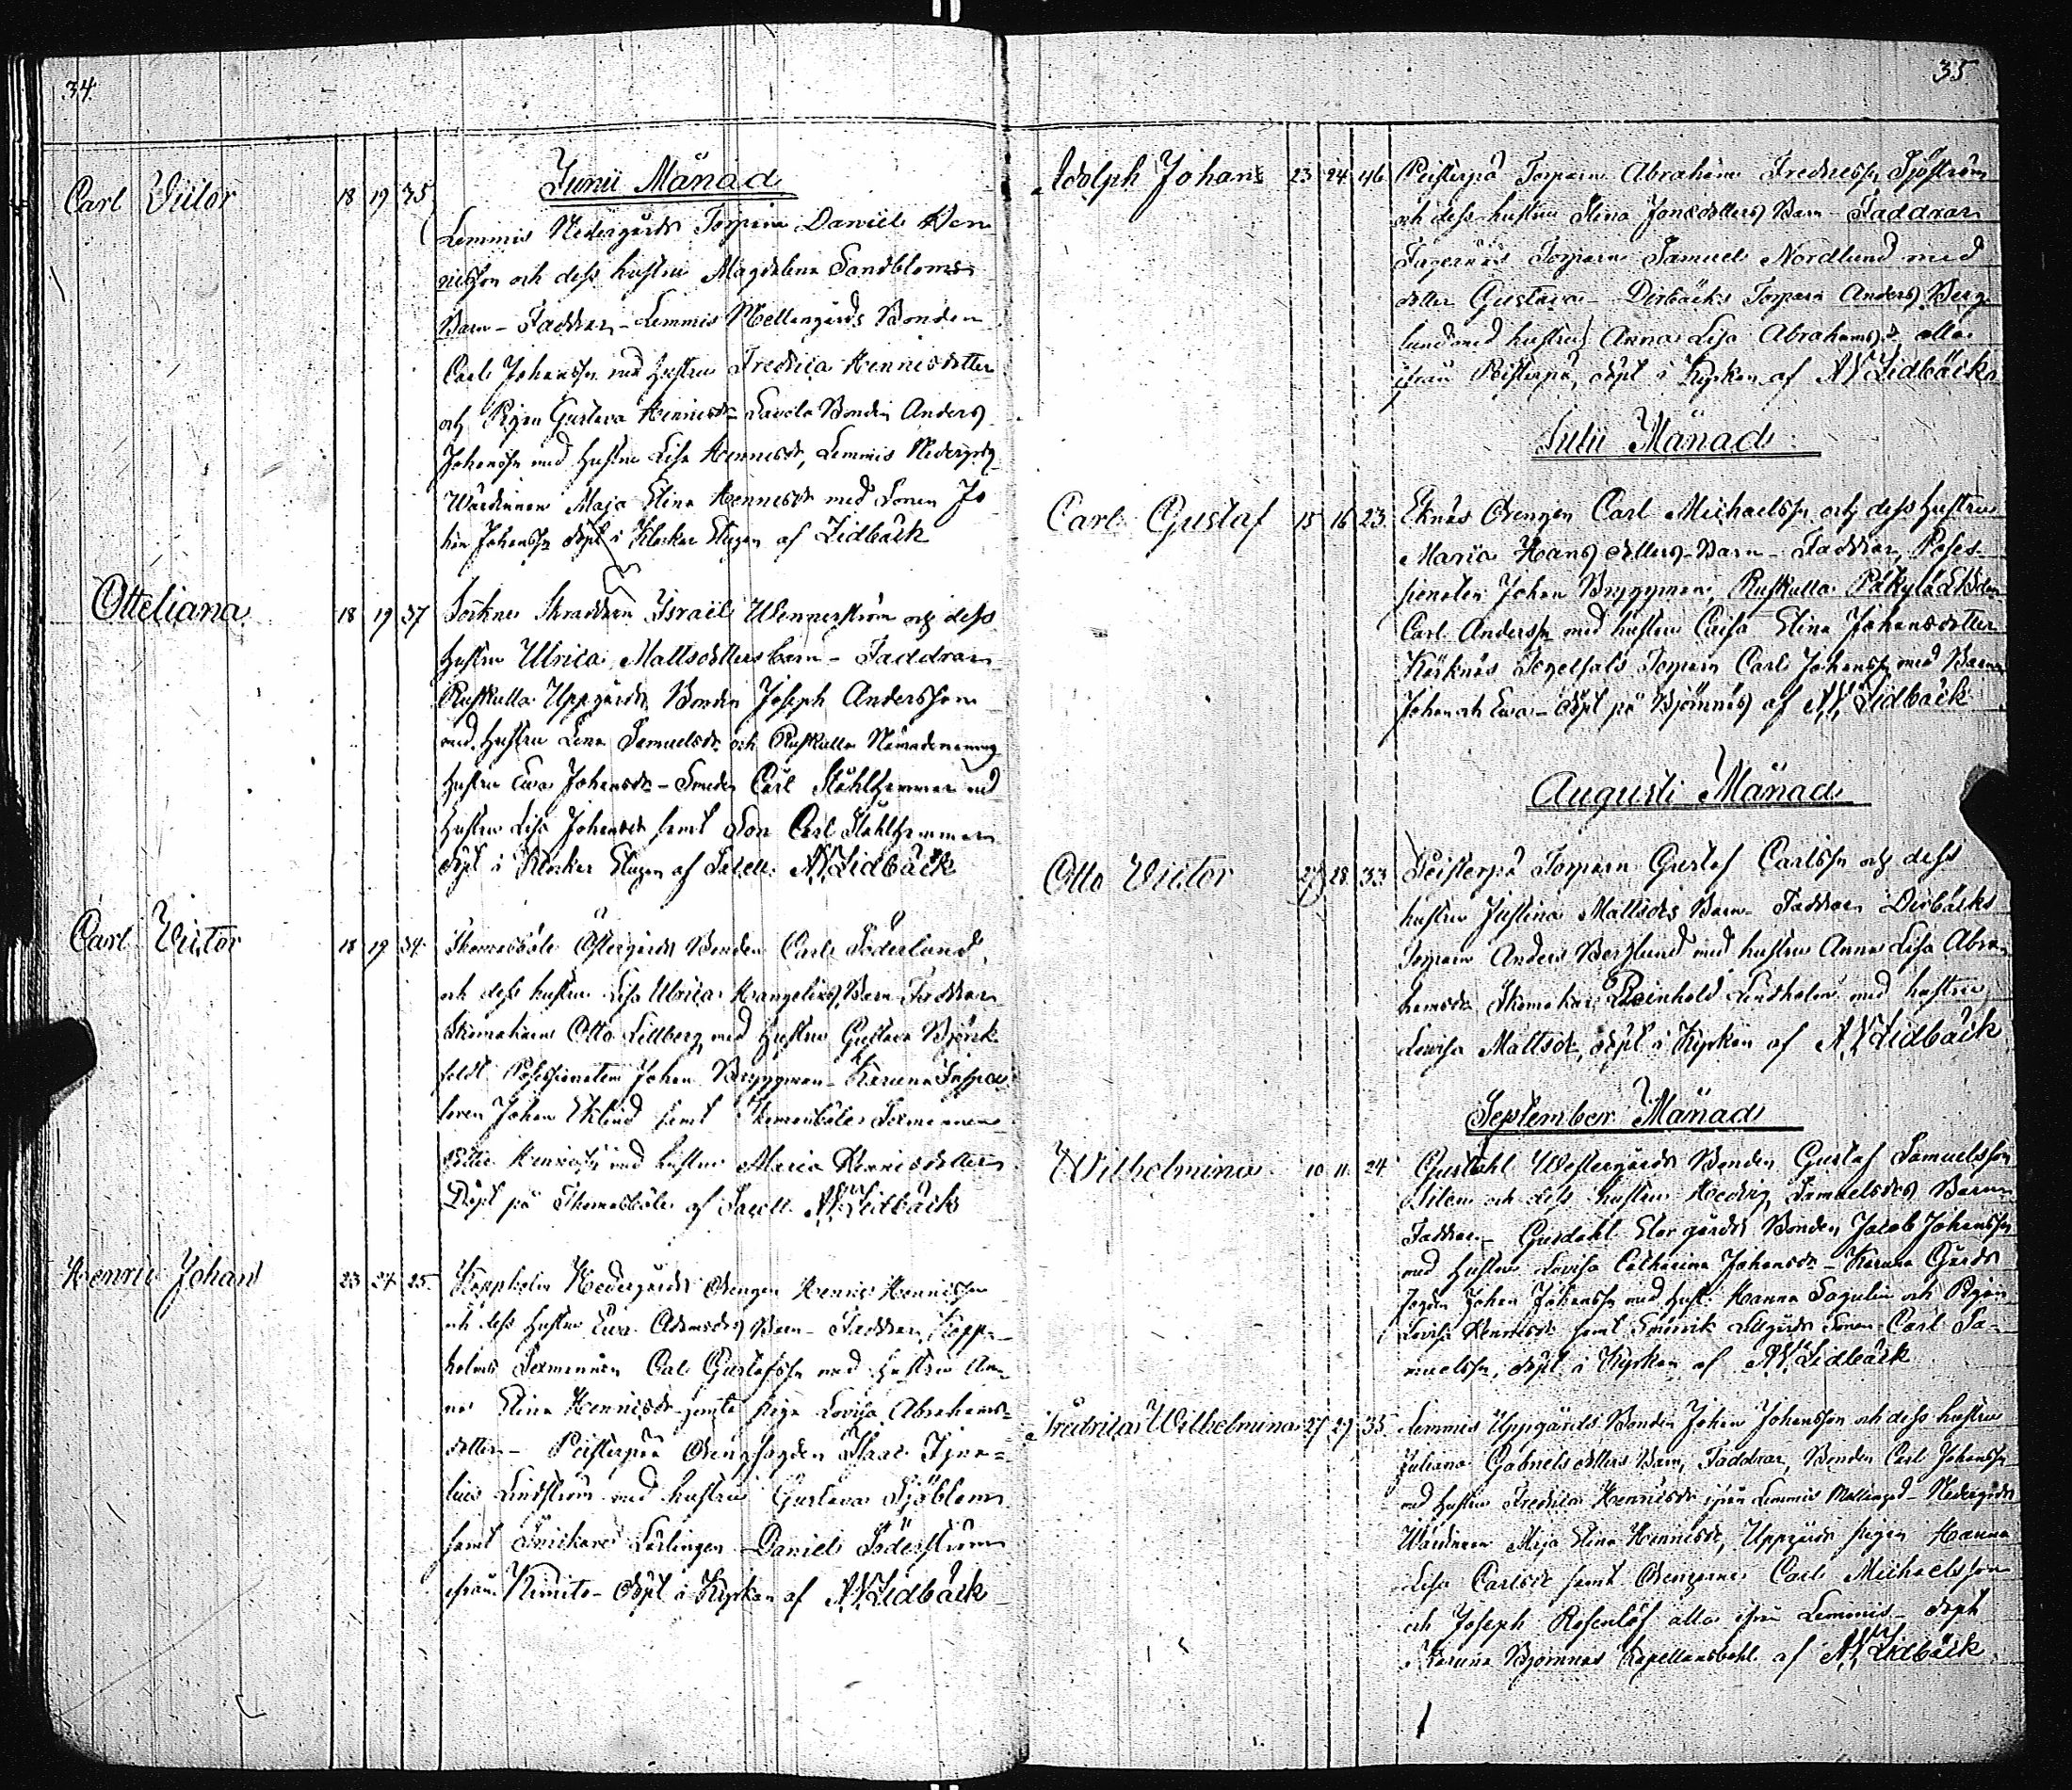 34.
Junii Månad
Carl Victor 18 19 35
Lemmis Nedergårds Torparn Daniel Hen
ricsson och dess hustru Magdalena Sandbloms
Barn - Faddrar - Lemmis Mellangårds Bonden
Carl Johansson med Hustru Fredrica Henricsdotter
och Pigan Gustava Henricsdr Bonden Anders
Johansson med Hustru Lisa Henricsdr, Lemmis Nedergrds
Wärdinnan Maja Stina Henricsdr med Sonen Jo
han Johansson döpt i Klockar Stugan af Lidbäck
Otteliana 18 19 37
Sockne Skraddarn Israel Wennerström och dess
Hustru Ulrica Mattsdotters barn - Faddrar
Ruskulla Uppgårds Bonden Joseph Andersson
med Hustru Lena Samuelsdr och Ruskulla
Hustru Ewa Johansdr - Smeden Carl Stålhammar med
Hustru Lisa Johansdr samt Son Carl Stålhammar
döpt i Klockar Stugan af A.W. Lidbäck
Carl Victor 18 19 34
Thomasböle Östergårds Bonden Carl Söderlund
och dess hustru Lisa Ulrica Barn Faddrar
Skomakaren Otto Lillberg med Hustru Gustava Björk
feldt Possessionaten Johan Bryggman - Karuna Inspec
toren Johan Eklund samt Thomasböle Sexmannen
Henricsson med hustru Maria Henricsdotter
Döpt på Thomasböle af A.W. Lidbäck
Henric Johan 23 24 25
Koppholm Nedergårds Drengen Henric Henricsson
och dess Hustru Ewa Adamsdrs Barn - Faddrar Kopp-
holms Sexmannen Carl Gustafsson med Hustru An-
na Stina Henricsdr jemte piga Lovisa Abrahams-
dotter - Peisterpää Drengfogden Isaac Igna-
tius Lindström med hustru Gustava Sjöblom
samt Snickare Lärlingen Daniel Söderström
ifrån Kimito - döpt i Kyrkan af A.W. Lidbäck
35
Adolph Johans 23 24 46
Peisterpä Torparn Abraham Fredricsson Sjöström
och dess hustru Stina Jonsdotters Barn - Faddrar
Torparn Samuel Nordlund med
dotter Gustava - Dirbäcks Torparn Anders Berg
lund med hustru Anna Lisa Abrahamsdr alla
ifrån Peisterpä, döpt i Kyrkan af A.W. Lidbäck
Julii Månad
Carl Gustaf 15 16 23
Eknäs Drengen Carl Michaelsson och dess Hustru
Maria Hansdotters Barn - Faddrar Posses-
sionaten Johan Bryggman, Ruskulla Påkylä
Carl Andersson med hustru Caisa Stina Johansdotter
Torparn Carl Johansson med Barnen
Johan och Ewa - döpt på Björnnäs af A.W. Lidbäck
Augusti Månad
Otto Victor 27 28 33
Peisterpä Torparn Gustaf Carlsson och dess
hustru Justina Mattsdrs Barn - Faddrar Dirbäcks
Torparn Anders Berglund med hustru Anna Lisa Abra
hamsdr Skomakar Reinhold Lindholm med hustru
Lovisa Mattsdr, döpt i Kyrkan af A.W. Lidbäck
September Månad
Wilhelmina 10 11 24
Gusdahl Westergårds Bonden Gustaf Samuelsson
och dess hustru Hedvig Samuelsdrs Barn
Faddrar - Gusdahl Storgårds Bonden Jacob Johansson
med Hustru Lovisa Catharina Johansdr - Karuna Gårds
fogden Johan Johansson med Hust. Hanna Sagulin och Pigan
Lovisa Henricsdr samt Sonen Carl Sa-
muelsson, döpt i Kyrkan af A.W. Lidbäck
Fredrika Wilhelmina 27 29 35
Lemmis Uppgårds Bonden Johan Johansson och dess hustru
Juliana Gabrielsdotters Barn, Faddrar, Bonden Carl Johansson
med Hustru Fredrica Henricsdr ifrån Lemmis Mellangrd - Nedergårds
Wärdinnan Maja Stina Henricsdr, Uppgårds pigan Hanna
Lisa Carlsdr samt Drengarne Carl Michaelsson
och Joseph Rosenlöf alla ifrån Lemmis - döpt
i Karuna Björnnäs Kapellansbohl af A.W. Lidbäck